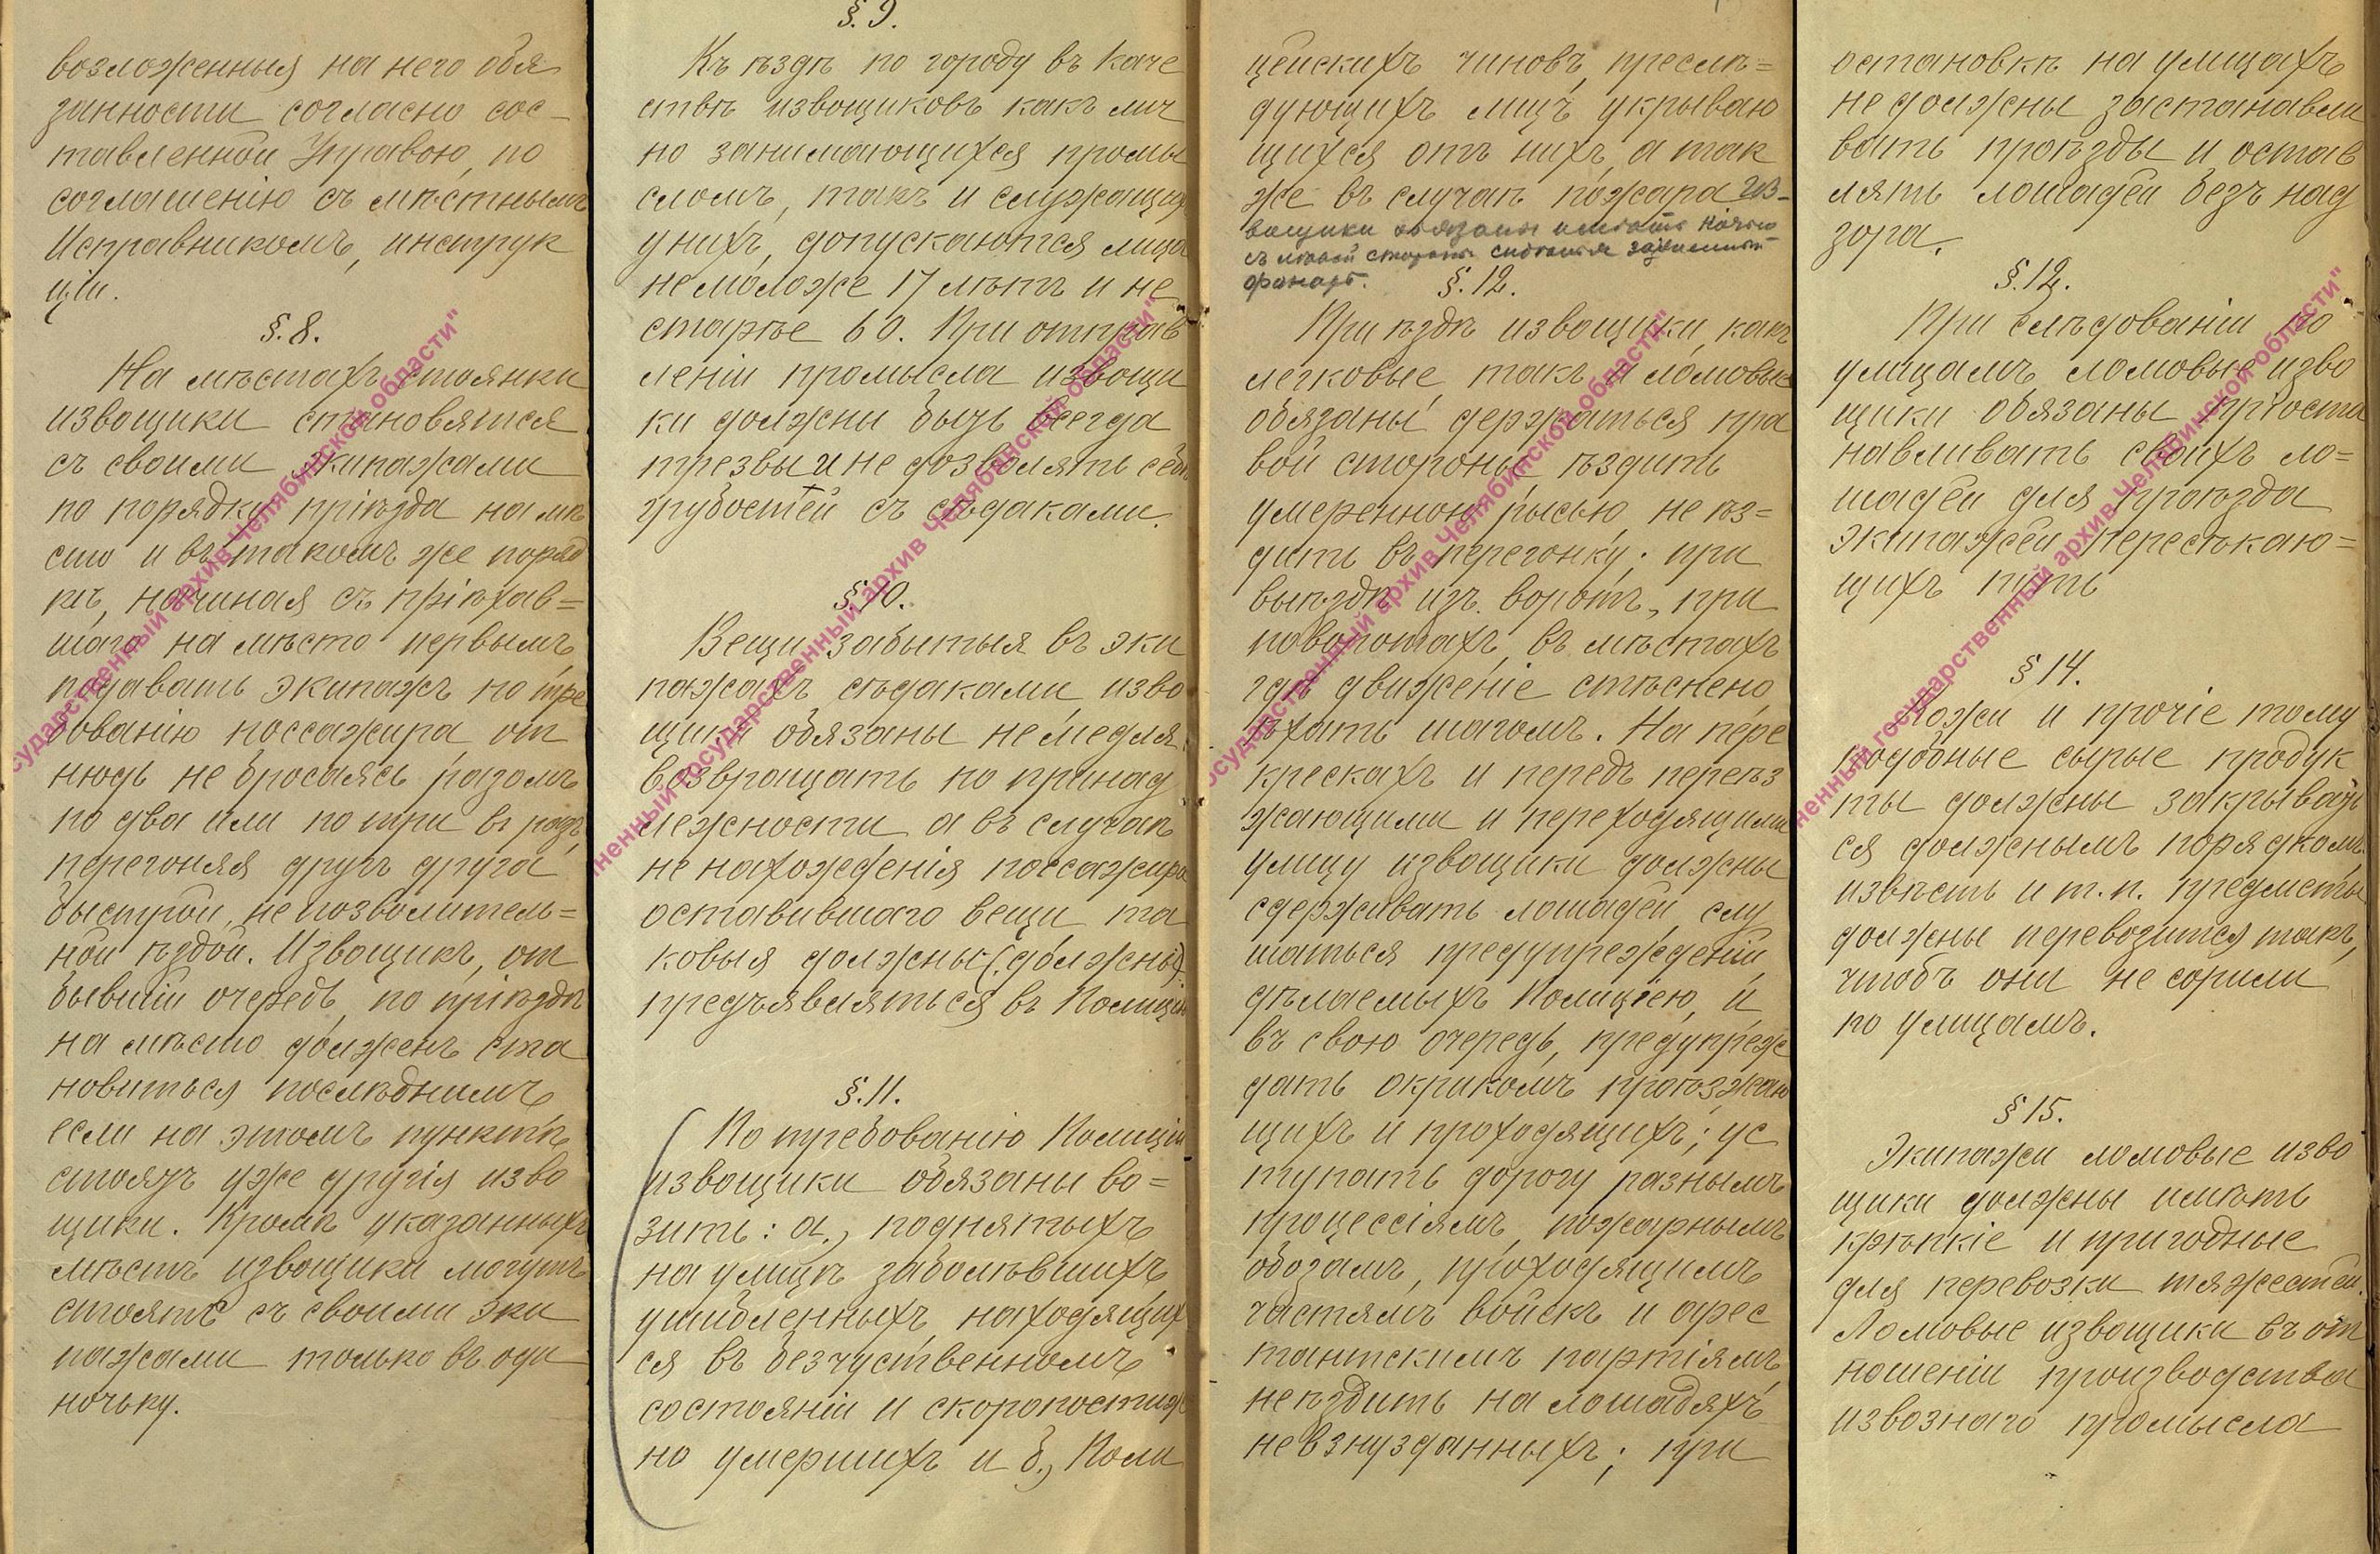 возложенныя на него обя
занности согласно сос-
тавленной Управою, по
соглашенію съ мѣстнымъ
Исправникомъ, инструк
ціи.
§. 8.
На мѣстахъ стоянки
извощики становятся
съ своими экипажами
по порядку пріѣзда на мѣ
сто и въ такомъ же поряд
кѣ, начиная съ пріѣхав=
шаго на мѣсто первымъ,
подавать экипажъ по тре
бованію поссажира, от
нюдь не бросаясь разомъ
по два или по три въ разъ,
перегоняя другъ друга
быстрой, не позволитель=
ной ѣздой. Извощикъ, от
бывшій очередь, по пріѣздѣ
на мѣсто долженъ ста
новиться послѣднимъ,
если на этомъ пунктѣ
стоятъ уже другія изво
щики. Кромѣ указанныхъ
мѣстъ извощики могутъ
стоять съ своими эки
пажами только въ оди
ночьку.
§. 9.
Къ ѣздѣ по городу въ каче
ствѣ извощиковъ какъ лич
но занимающихся промы
сломъ, такъ и служащихъ
у нихъ, допускаются лица
не моложе 17 лѣтъ и не
старѣе 60. При отправ
леніи промысла извощи
ки должны быть всегда
трезвы и не дозволять себѣ
грубостей съ сѣдаками.
§ 10.
Вещи, забытыя въ эки
пажахъ сѣдаками, изво
щики обязаны немедля
возвращать по принад
лежности, а въ случаѣ
не нахожденія поссажира
оставившаго вещи, та
ковыя должны (должны)
предъявляться въ Полицію
§. 11.
По требованію Полиціи
извощики обязаны во=
зить: а., поднятыхъ
на улицѣ заболѣвшихъ,
ушибленныхъ, находящих
ся въ безчуственномъ
состояніи и скоропостиж
но умершихъ и б., Поли
цейскихъ чиновъ, преслѣ=
дующихъ лицъ укрываю
щихся отъ нихъ, а так
же въ случаѣ пожара Из-
вощики обязаны имѣть ночью
съ лѣвой стороны сидѣнья зажженый
фонарь.
§. 12.
При ѣздѣ извощики, какъ
легковые, такъ и ломовые
обязаны держаться пра
вой стороны, ѣздить
умеренною рысью, не ѣз=
дить въ перегонку; при
выѣздѣ изъ воротъ, при
поворотахъ, въ мѣстахъ
гдѣ движеніе стѣснено,
ѣхать шагомъ. На пере
крескахъ и передъ переѣз
жающими и переходящими
улицу извощики должны
сдерживать лошадей, слу
шаться предупрежденій,
дѣлаемыхъ Полиціею, и,
въ свою очередь, предупреж
дать окрикомъ проѣзжаю
щихъ и проходящихъ; ус
тупать дорогу разнымъ
процессіямъ, пожарнымъ
обозамъ, проходящимъ
частямъ войскъ и арес
тантскимъ партіямъ,
не ѣздить на лошадяхъ
невзнузданныхъ; при
остановкѣ на улицахъ
не должны застанавли
вать проѣзды и остав
лять лошадей безъ над
зора.
§. 12.
При слѣдованіи по
улицамъ ломовые изво
щики обязаны приоста
навливать своихъ ло=
шадей для проѣзда
экипажей пересѣкаю=
щихъ путь
§ 14.
Кожи и прочіе тому
подобные сырые продук
ты должны закрывать
ся должнымъ порядкомъ,
извѣсть и т. п. предметы
должны перевозится такъ,
чтобъ они не сорили
по улицамъ.
§ 15.
Экипажи ломовые изво
щики должны имѣть
крѣпкіе и пригодные
для перевозки тяжестей.
Ломовые извощики въ от
ношеніи производства
извознаго промысла
Объединенный государственный архив Челябинской области"